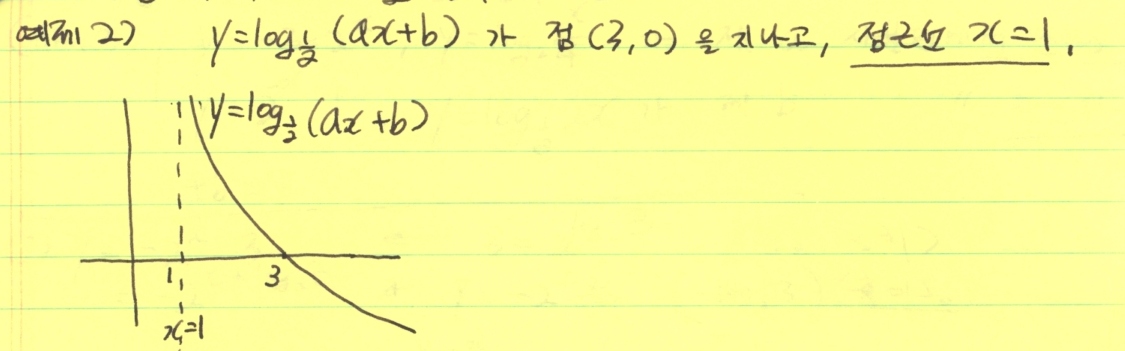 예제 2) y=log½ (ax+b) 가 점 (3,0) 을 지나고, 점근선 x=1.
y=log½ (ax+b)
1 3
x=1